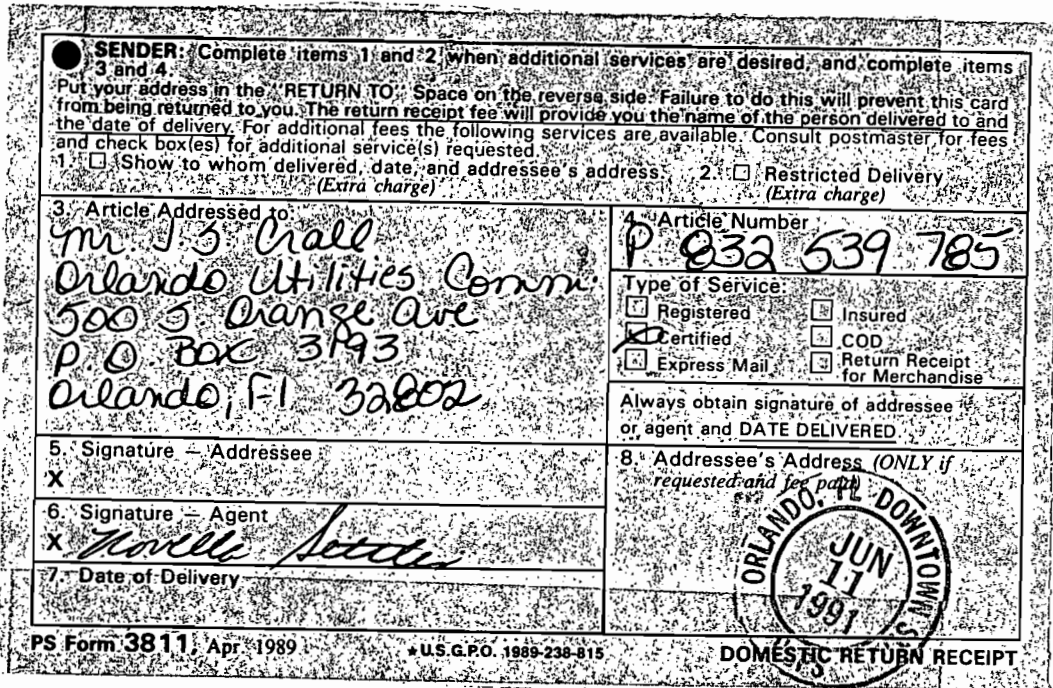 SENDER: Complete items 1 and 2 when additional services are desired, and complete items
3 and 4.
Put your address in the "RETURN TO" Space on the reverse side. Failure to do this will prevent this card
from being returned to you. The return receipt fee will provide you the name of the person delivered to and
the date of delivery. For additional fees the following services are available. Consult postmaster for fees
and check box(es) for additional service(s) requested.
1. ☐ Show to whom delivered, date, and addressee's address. 2. ☐ Restricted Delivery
(Extra charge) (Extra charge)
3. Article Addressed to:
Mr. J S. Crall
Orlando Utilities Comm.
500 S. Orange Ave
P.O BOX 3193
Orlando, Fl 32802
4. Article Number
P 832 539 785
Type of Service:
☐ Registered ☐ Insured
☒ Certified ☐ COD
☐ Express Mail ☐ Return Receipt
for Merchandise
Always obtain signature of addressee
or agent and DATE DELIVERED
5. Signature — Addressee
X
6. Signature — Agent
X Novella
7. Date of Delivery
8. Addressee's Address (ONLY if
requested and fee paid)
ORLANDO, FL DOWNTOWN
JUN
11
1991
PS Form 3811, Apr. 1989 ★U.S.G.P.O. 1989-238-815 DOMESTIC RETURN RECEIPT